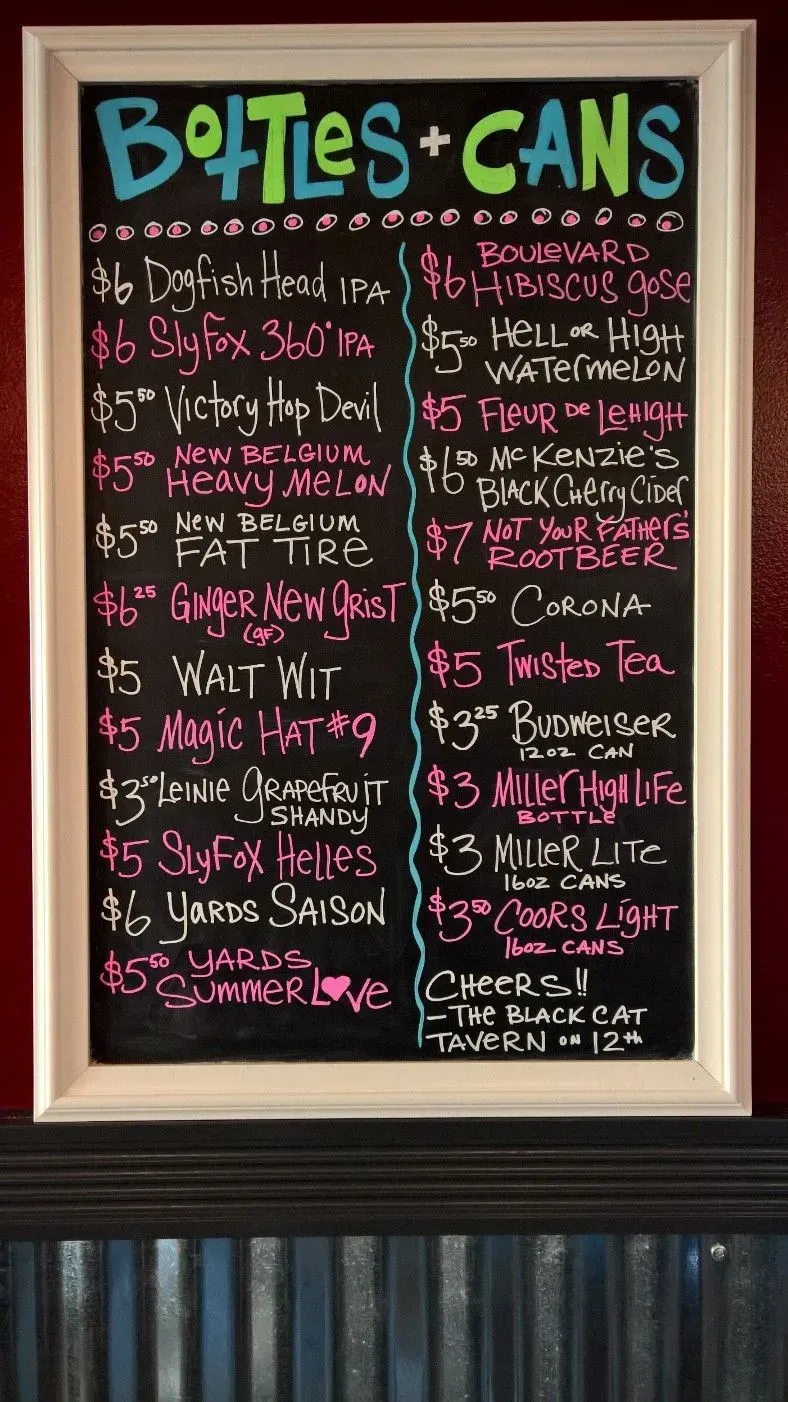 BOTTLES + CANS
$6 Dogfish Head IPA
$6 SlyFox 360° IPA
$5⁵⁰ Victory Hop Devil
$5⁵⁰ NEW BELGIUM
Heavy MELON
$5⁵⁰ NEW BELGIUM
FAT TIRE
$6²⁵ GINGER NEW GRIST
(GF)
$5 WALT WIT
$5 Magic HAT #9
$3⁵⁰ LEINIE GRAPEFRUIT
SHANDY
$5 SLYFOX HELLES
$6 YARDS SAISON
$5⁵⁰ YARDS
SUMMER L♥VE
BOULEVARD
$6 HIBISCUS GOSE
$5⁵⁰ HELL OR HIGH
WATERMELON
$5 FLEUR DE LEHIGH
$6⁵⁰ McKENZIE'S
BLACK CHERRY CIDER
$7 NOT YOUR FATHERS'
ROOT BEER
$5⁵⁰ CORONA
$5 TWISTED TEA
$3²⁵ BUDWEISER
12OZ CAN
$3 MILLER HIGH LIFE
BOTTLE
$3 MILLER LITE
16OZ CANS
$3⁵⁰ COORS LIGHT
16OZ CANS
CHEERS!!
–THE BLACK CAT
TAVERN ON 12th